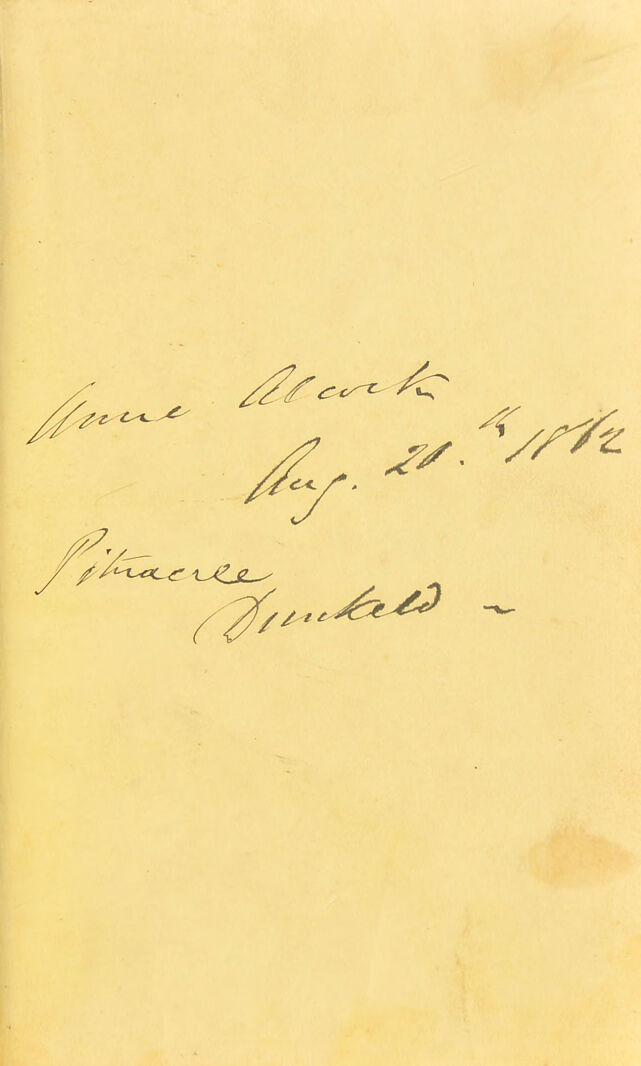 Anne Alcock
Aug. 20.th 1862
Pitnacree
Dunkeld ~